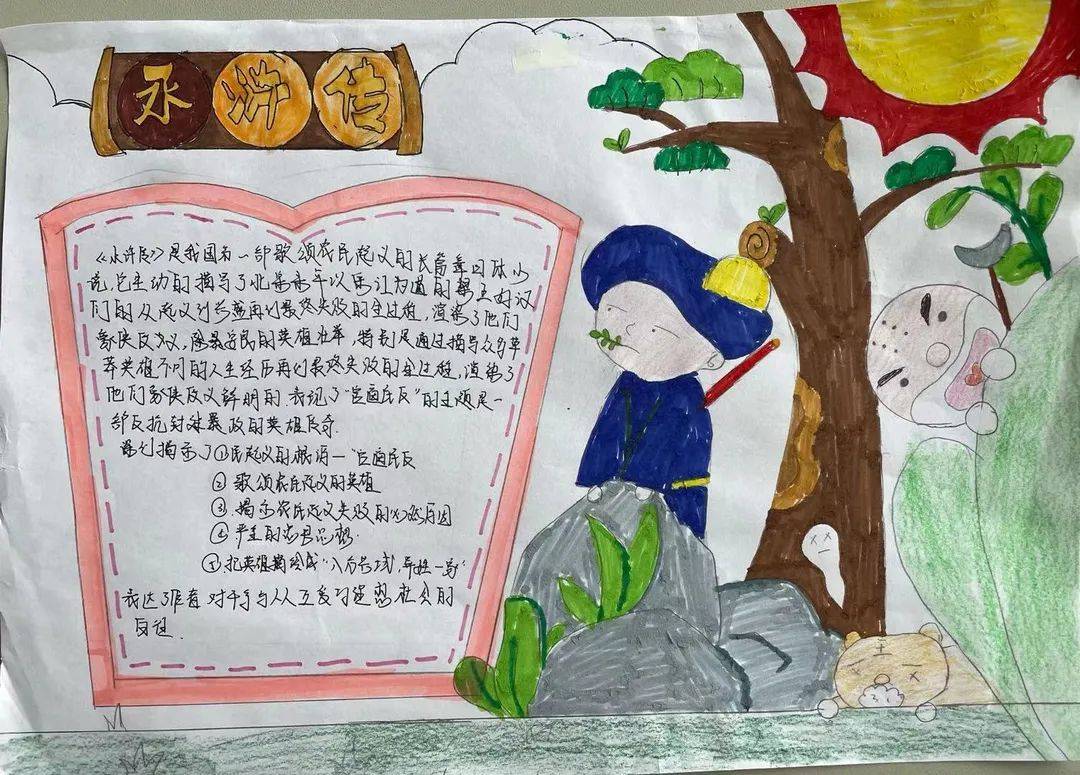 水浒传
《水浒传》是我国有一部歌颂农民起义的长篇章回体小
说,它生动的描写了北宋末年以宋江为首的
们的从起义到长盛再到最终失败的全过程,渲染了他们
豪侠反义,的英雄壮举,特别是通过描写众多草
莽英雄不同的人生经历再到最终失败的全过程,渲染了
他们豪侠反义鲜明的.表现了"官逼民反"的主题是一
部反抗封建暴政的英雄传奇.
揭示了①民起义的根源一"官逼民反
②歌颂农民起义的英雄
③揭示农民起义失败的内在原因
④严重的忠君思想.
⑤把英雄描绘成"八方共域,异姓一家"
表达了作者对平等与人人互爱的理想社会的
王